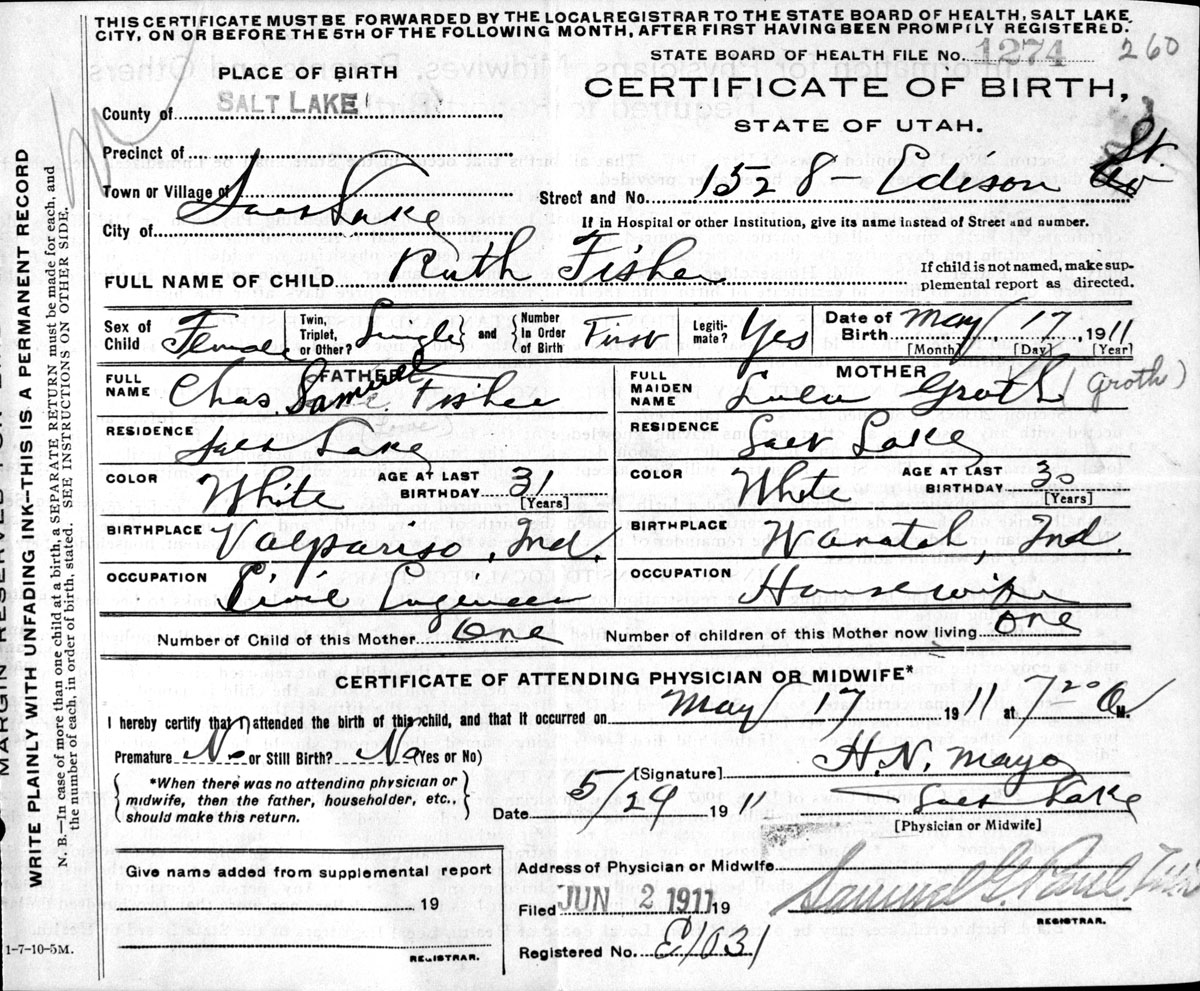 THIS CERTIFICATE MUST BE FORWARDED BY THE LOCALREGISTRAR TO THE STATE BOARD OF HEALTH, SALT LAKE
CITY, ON OR BEFORE THE 5TH OF THE FOLLOWING MONTH, AFTER FIRST HAVING BEEN PROMPILY REGISTERED.
STATE BOARD OF HEALTH FILE No. 1274 260
PLACE OF BIRTH
CERTIFICATE OF BIRTH,
STATE OF UTAH.
County of SALT LAKE
Precinct of
Town or Village of
Street and No. 1528 - Edison St.
City of Salt Lake
If in Hospital or other Institution, give its name instead of Street and number.
FULL NAME OF CHILD Ruth Fisher
If child is not named, make sup-
plemental report as directed.
Sex of Child Female Twin, Triplet, or Other? Single and Number In Order of Birth First Legiti- mate? Yes Date of Birth May 17 1911
[Month] [Day] [Year]
FATHER MOTHER
FULL NAME Chas. Samuel Fisher FULL MAIDEN NAME Lulu Groth (Groth)
RESIDENCE Salt Lake RESIDENCE Salt Lake
COLOR White AGE AT LAST BIRTHDAY 31 [Years] COLOR White AGE AT LAST BIRTHDAY 30 [Years]
BIRTHPLACE Valpariso, Ind. BIRTHPLACE Wanatah, Ind.
OCCUPATION Civil Engineer OCCUPATION Housewife
Number of Child of this Mother One Number of children of this Mother now living One
CERTIFICATE OF ATTENDING PHYSICIAN OR MIDWIFE*
I hereby certify that I attended the birth of this child, and that it occurred on May 17 1911 at 7 20 a M.
Premature No or Still Birth? No (Yes or No)
[Signature] H. N. Mayo
*When there was no attending physician or
midwife, then the father, householder, etc.,
should make this return.
Date 5/24 1911 Salt Lake
[Physician or Midwife]
Give name added from supplemental report
19
REGISTRAR.
Address of Physician or Midwife
Filed JUN 2 1911 19
REGISTRAR.
Registered No. E1031
1-7-10-5M.
WRITE PLAINLY WITH UNFADING INK-THIS IS A PERMANENT RECORD
N. B.—In case of more than one child at a birth, a SEPARATE RETURN must be made for each, and
the number of each, in order of birth, stated. SEE INSTRUCTION ON OTHER SIDE.